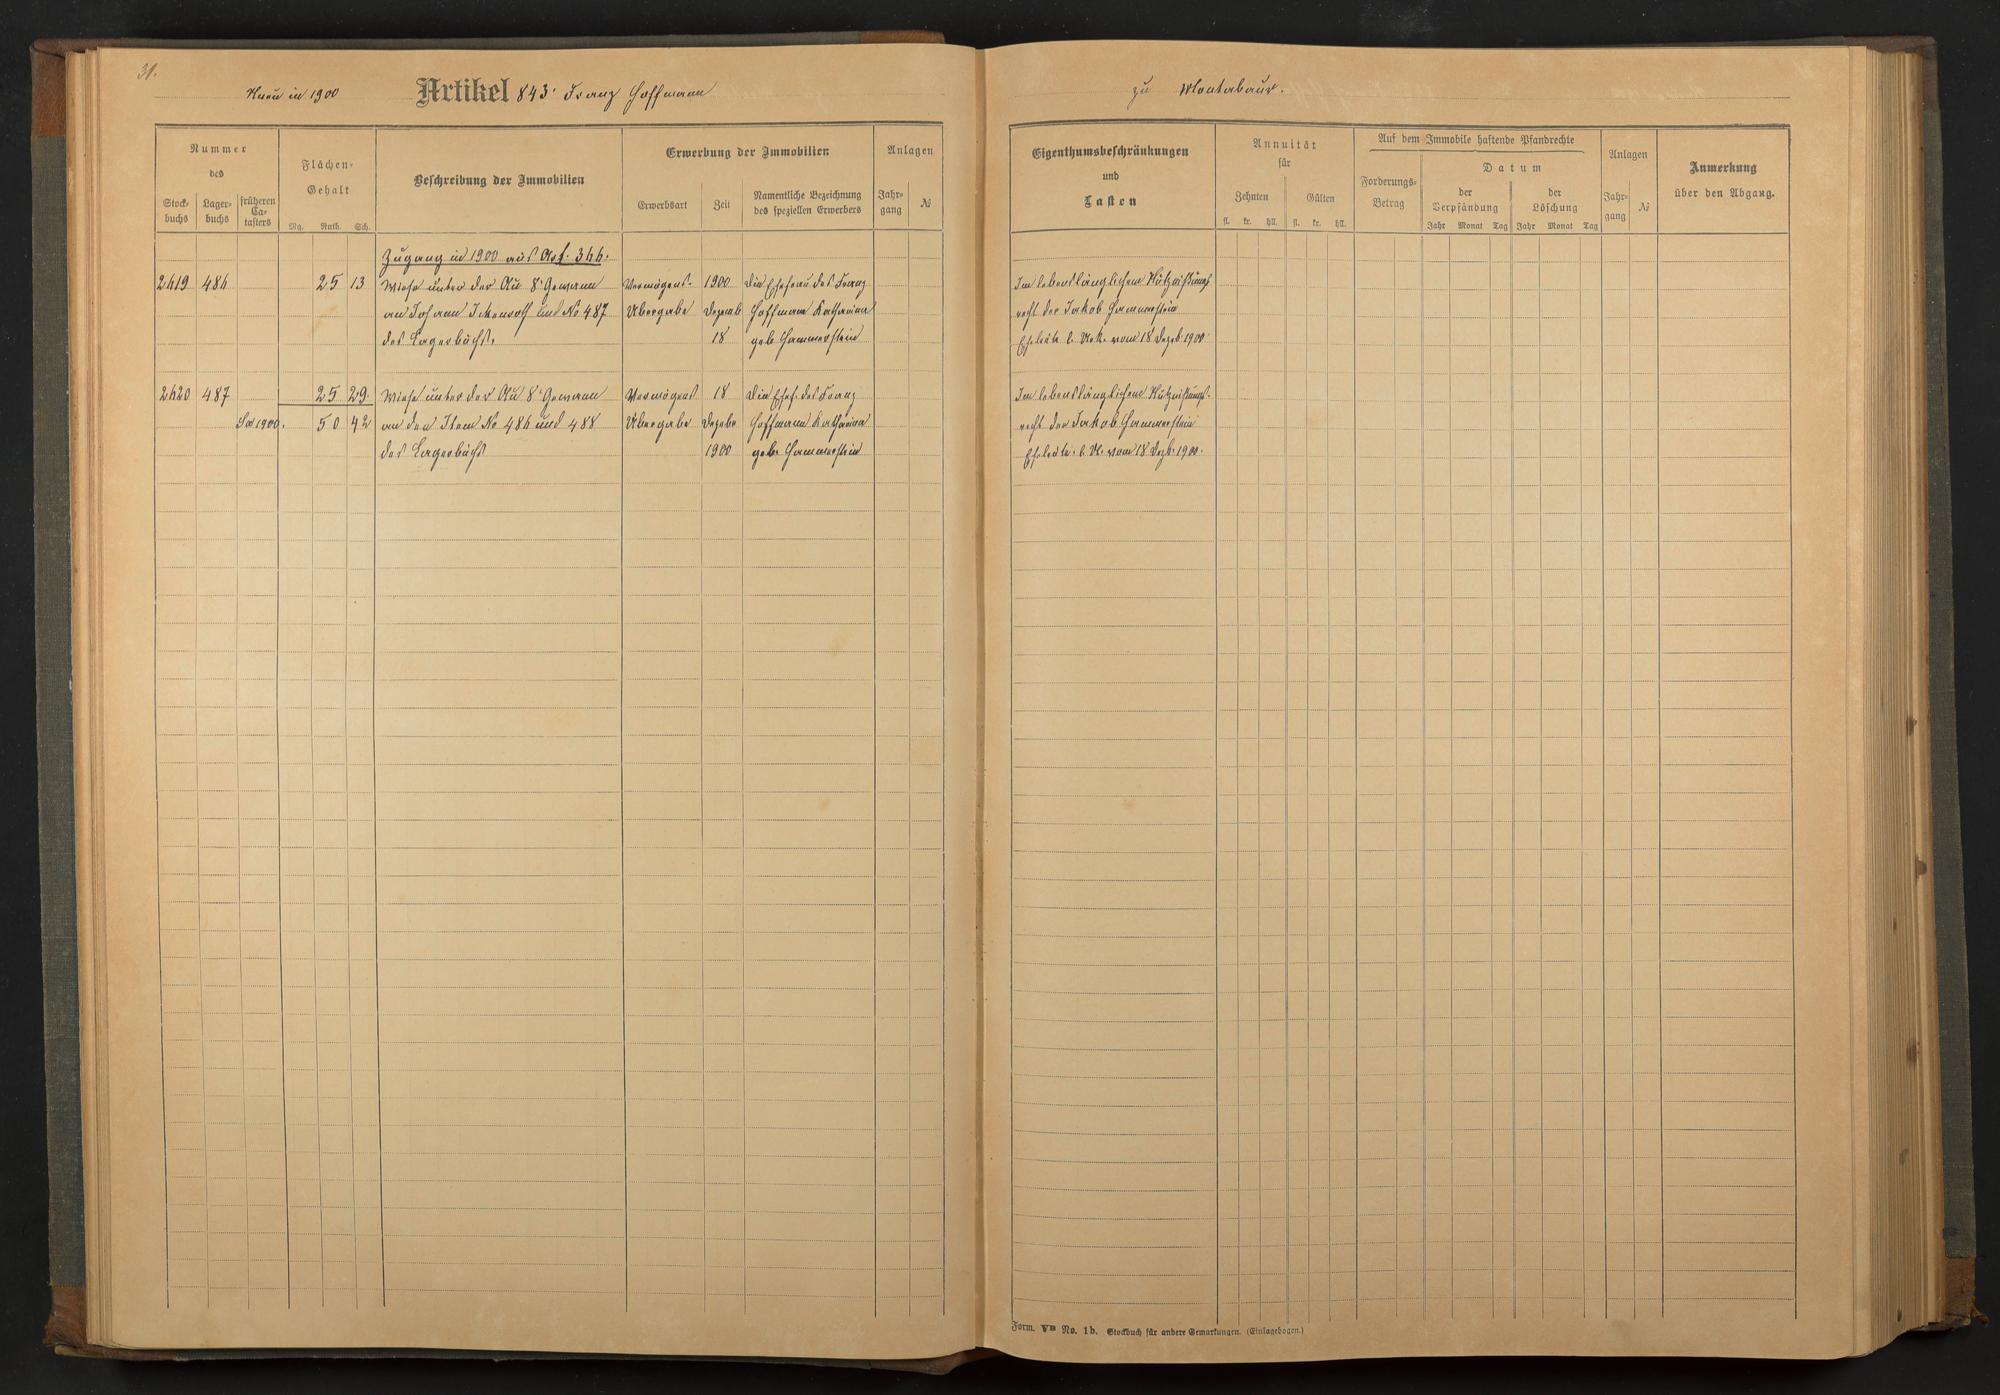 31.
Neu in 1900 Artikel 843. Franz Hoffmann
zu Montabaur.
Nummer
des
Stock-
buchs
Lager-
buchs
früheren
Ca-
tasters
Flächen-
Gehalt
Mg. Ruth. Sch.
Beschreibung der Immobilien
Erwerbung der Immobilien
Erwerbsart
Zeit
Namentliche Bezeichnung
des speziellen Erwerbers
Anlagen
Jahr-
gang
№
Zugang in 1900 aus Art. 366.
2619 486 25 13 Wiese unter der Au 8. Gewann Vermögens- 1900 die Ehefrau des Franz
an Johann Ickenroth und No 487 Übergabe Dezemb Hoffmann Katharina
des Lagerbuchs. 18 geb. Hammerstein
2620 487 25 29 Wiese unter der Au 8. Gewann Vermögens 18 die Ehef. des Franz
Sa 1900. 50 42 an den Item No 486 und 488 Übergabe Dezebr Hoffmann Katharina
des Lagerbuchs 1900 geb. Hammerstein
Eigenthumsbeschränkungen
und
Lasten
Annuität
für
Zehnten
fl. kr. hll.
Gülten
fl. kr. hll.
Auf dem Immobile haftende Pfandrechte
Forderungs-
Betrag
Datum
der
Verpfändung
Jahr Monat Tag
der
Löschung
Jahr Monat Tag
Anlagen
Jahr-
gang
№
Anmerkung
über den Abgang.
Im lebenslänglichen Nutznißungs
recht der Jakob Hammerstein
Eheleute l. Urk. vom 18 Dezeb. 1900.
Im lebenslänglichen Nutznißungs-
recht der Jakob Hammerstein
Eheleute. l. U. vom 18 Dezb. 1900.
Form. VB No. 1b. Stockbuch für andere Gemarkungen. (Einlagebogen.)